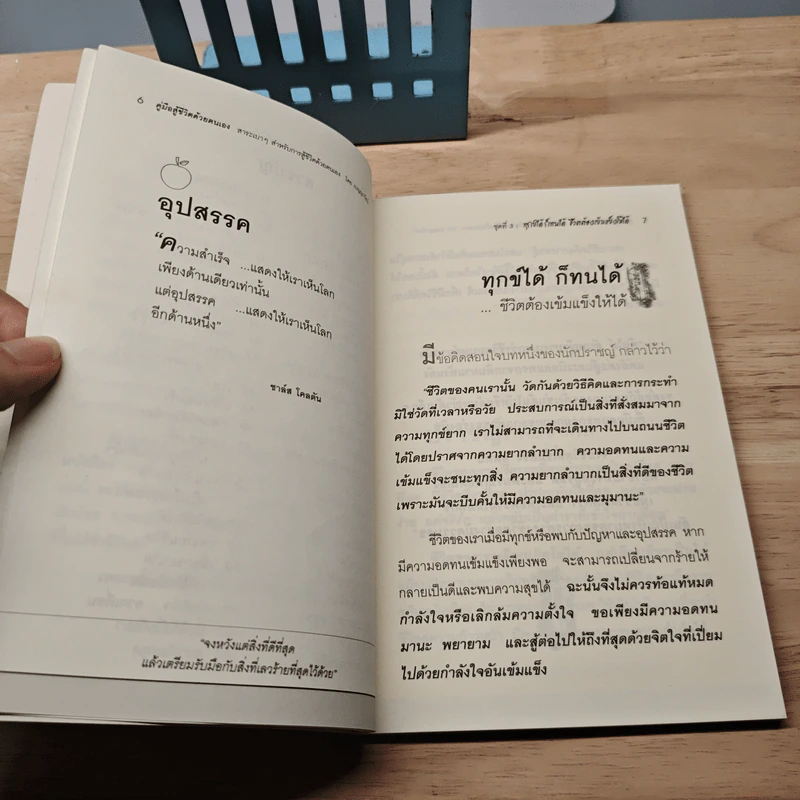 6 คู่มือสู้ชีวิตด้วยตนเอง สาระเบาๆ สำหรับการสู้ชีวิตด้วยตนเอง โดย
อุปสรรค
"ความสำเร็จ ...แสดงให้เราเห็นโลก
เพียงด้านเดียวเท่านั้น
แต่อุปสรรค ...แสดงให้เราเห็นโลก
อีกด้านหนึ่ง"
ชาล์ส โคลตัน
"จงหวังแต่สิ่งที่ดีที่สุด
แล้วเตรียมรับมือกับสิ่งที่เลวร้ายที่สุดไว้ด้วย"
ชุดที่ 3 : ทุกข์ได้ ก็ทนได้ ชีวิตต้องเข้มแข็งให้ได้ 7
ทุกข์ได้ ก็ทนได้
... ชีวิตต้องเข้มแข็งให้ได้
มีข้อคิดสอนใจบทหนึ่งของนักปราชญ์ กล่าวไว้ว่า
"ชีวิตของคนเรานั้น วัดกันด้วยวิธีคิดและการกระทำ
มิใช่วัดที่เวลาหรือวัย ประสบการณ์เป็นสิ่งที่สั่งสมมาจาก
ความทุกข์ยาก เราไม่สามารถที่จะเดินทางไปบนถนนชีวิต
ได้โดยปราศจากความยากลำบาก ความอดทนและความ
เข้มแข็งจะชนะทุกสิ่ง ความยากลำบากเป็นสิ่งที่ดีของชีวิต
เพราะมันจะบีบคั้นให้มีความอดทนและมุมานะ"
ชีวิตของเราเมื่อมีทุกข์หรือพบกับปัญหาและอุปสรรค หาก
มีความอดทนเข้มแข็งเพียงพอ จะสามารถเปลี่ยนจากร้ายให้
กลายเป็นดีและพบความสุขได้ ฉะนั้นจึงไม่ควรท้อแท้หมด
กำลังใจหรือเลิกล้มความตั้งใจ ขอเพียงมีความอดทน
มานะ พยายาม และสู้ต่อไปให้ถึงที่สุดด้วยจิตใจที่เปี่ยม
ไปด้วยกำลังใจอันเข้มแข็ง